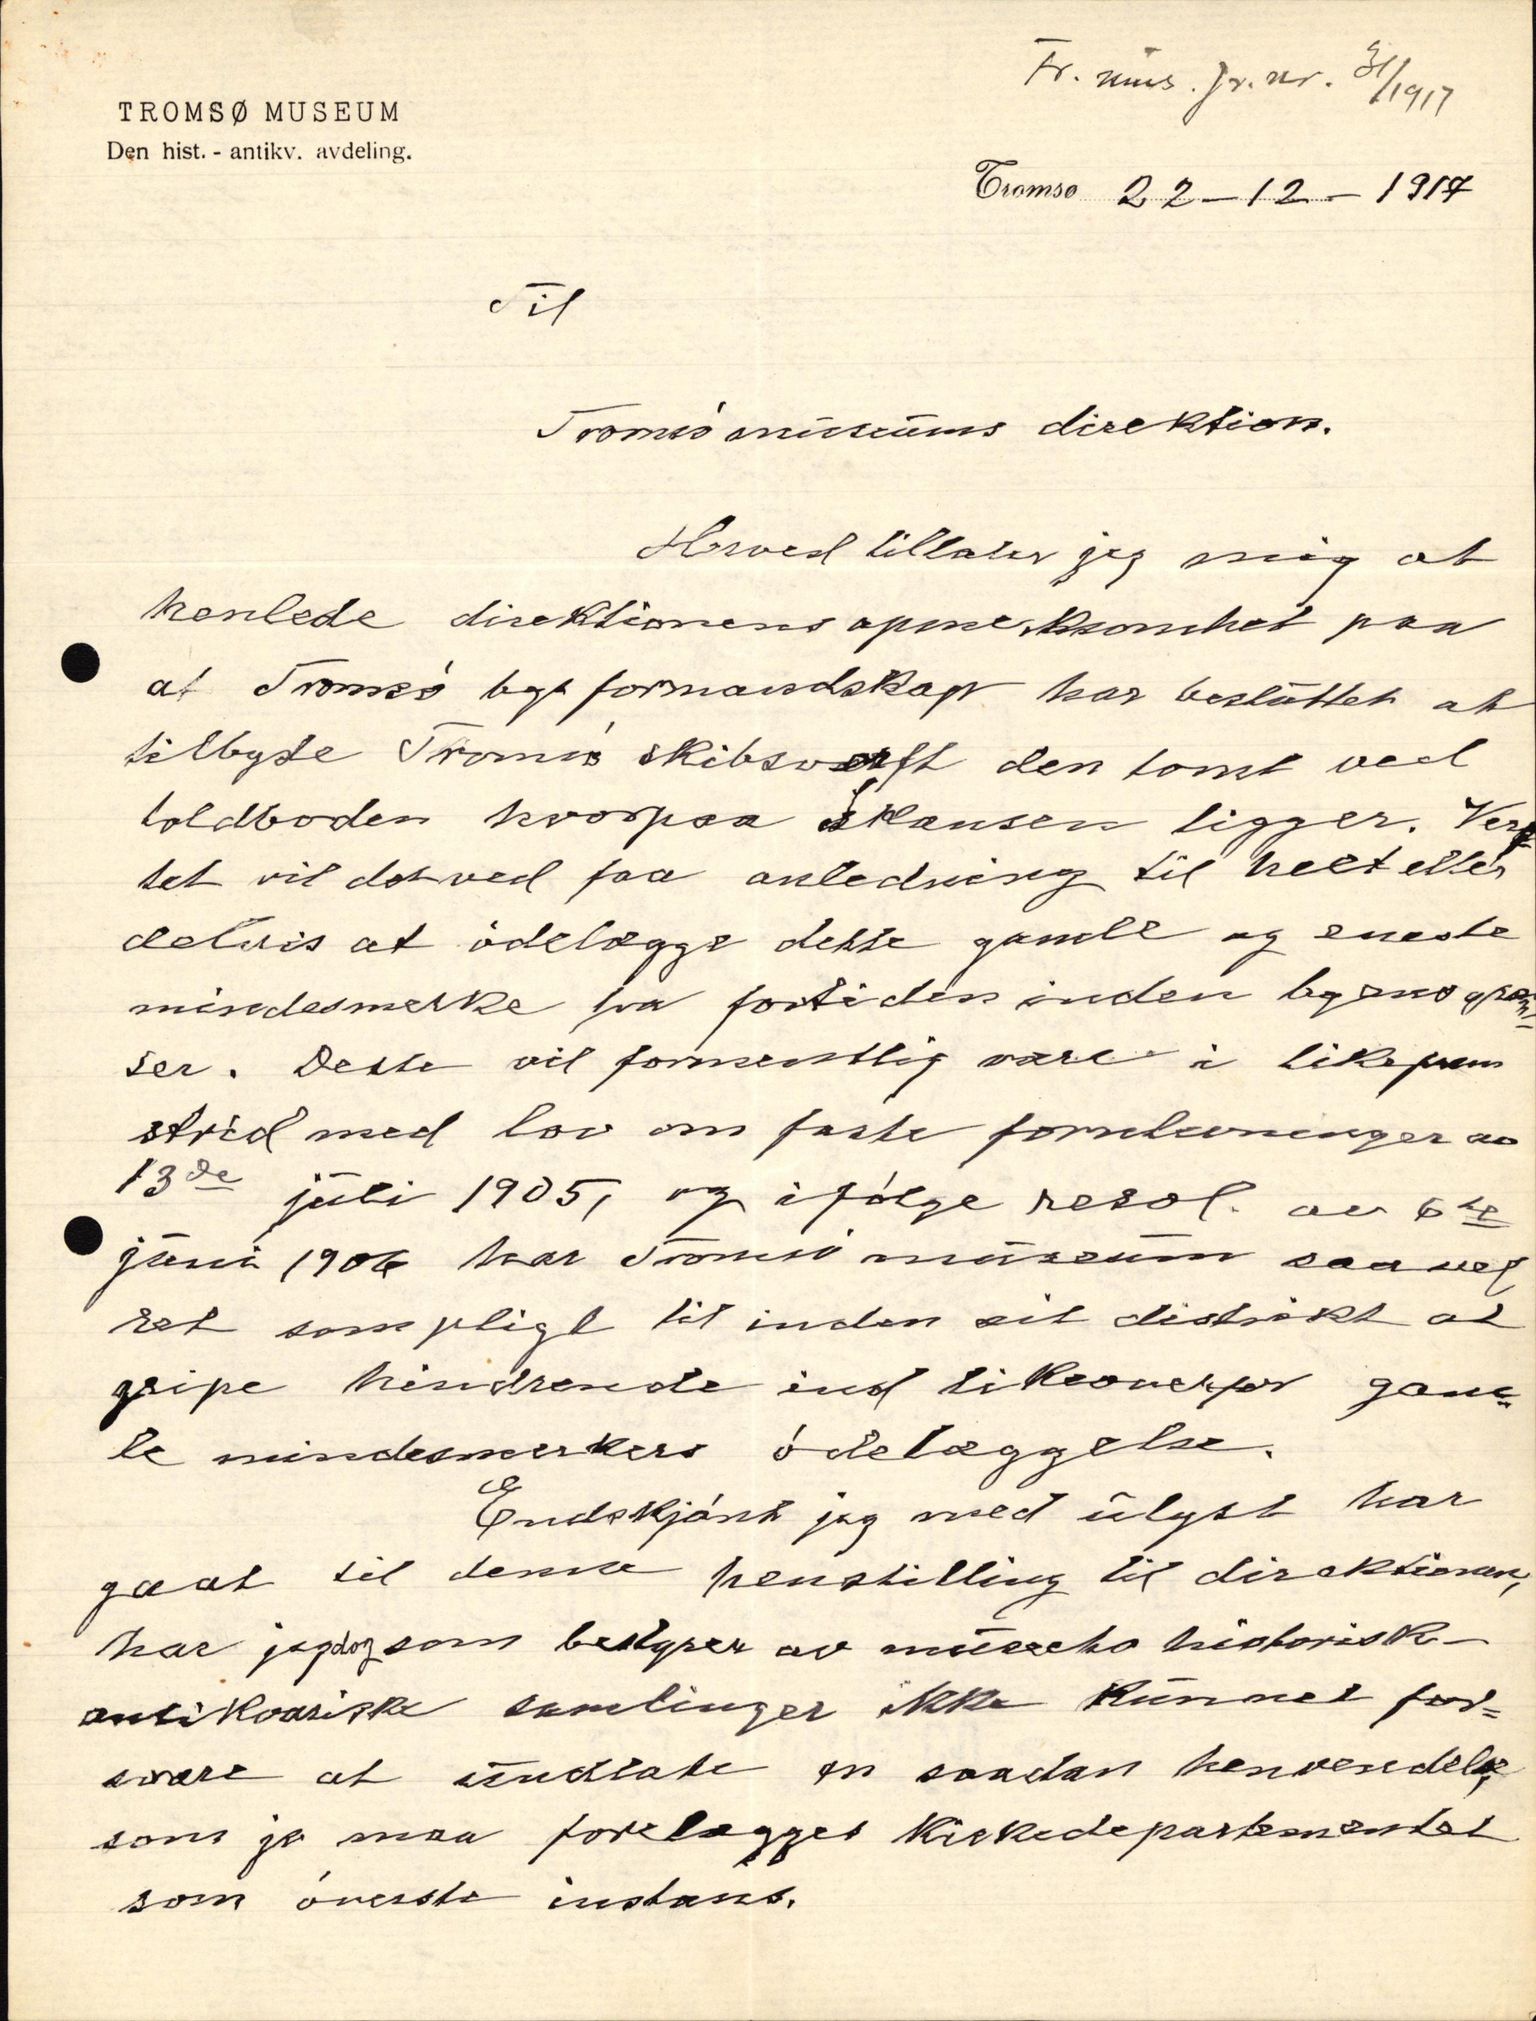 Tr. mus. jr. nr. 31/1917
TROMSØ MUSEUM
Den hist. - antikv. avdeling.
Tromsø 22-12-1917
Til
Tromsö museums direktion.
Herved tillater jeg mig at
henlede direktionens opmerksomhet paa
at Tromsö bys formandskap har besluttet at
tilbyde Tromsö skibsverft den tomt ved
toldboden hvorpaa skansen ligger. Verf-
tet vil derved faa anledning til helt eller
delvis at ödelægge dette gamle og eneste
mindesmerke fra fortiden inden byens græn-
ser. Dette vil formentlig være i likefrem
strid med lov om faste fornlevninger av
13de juli 1905, og ifölge resol. av 6te
juni 1906 har Tromsö museum saavel
ret som pligt til inden sit distrikt at
gripe hindrende ind likeoverfor gam-
le mindesmerkers ödelæggelse.
Endskjönt jeg med ulyst har
gaat til denne henstilling til direktionen,
har jeg dog som bestyrer av museets historisk-
antikvariske samlinger ikke kunnet for-
svare at undlate en saadan henvendelse,
som jo maa forelægges Kirkedepartementet
som överste instans.